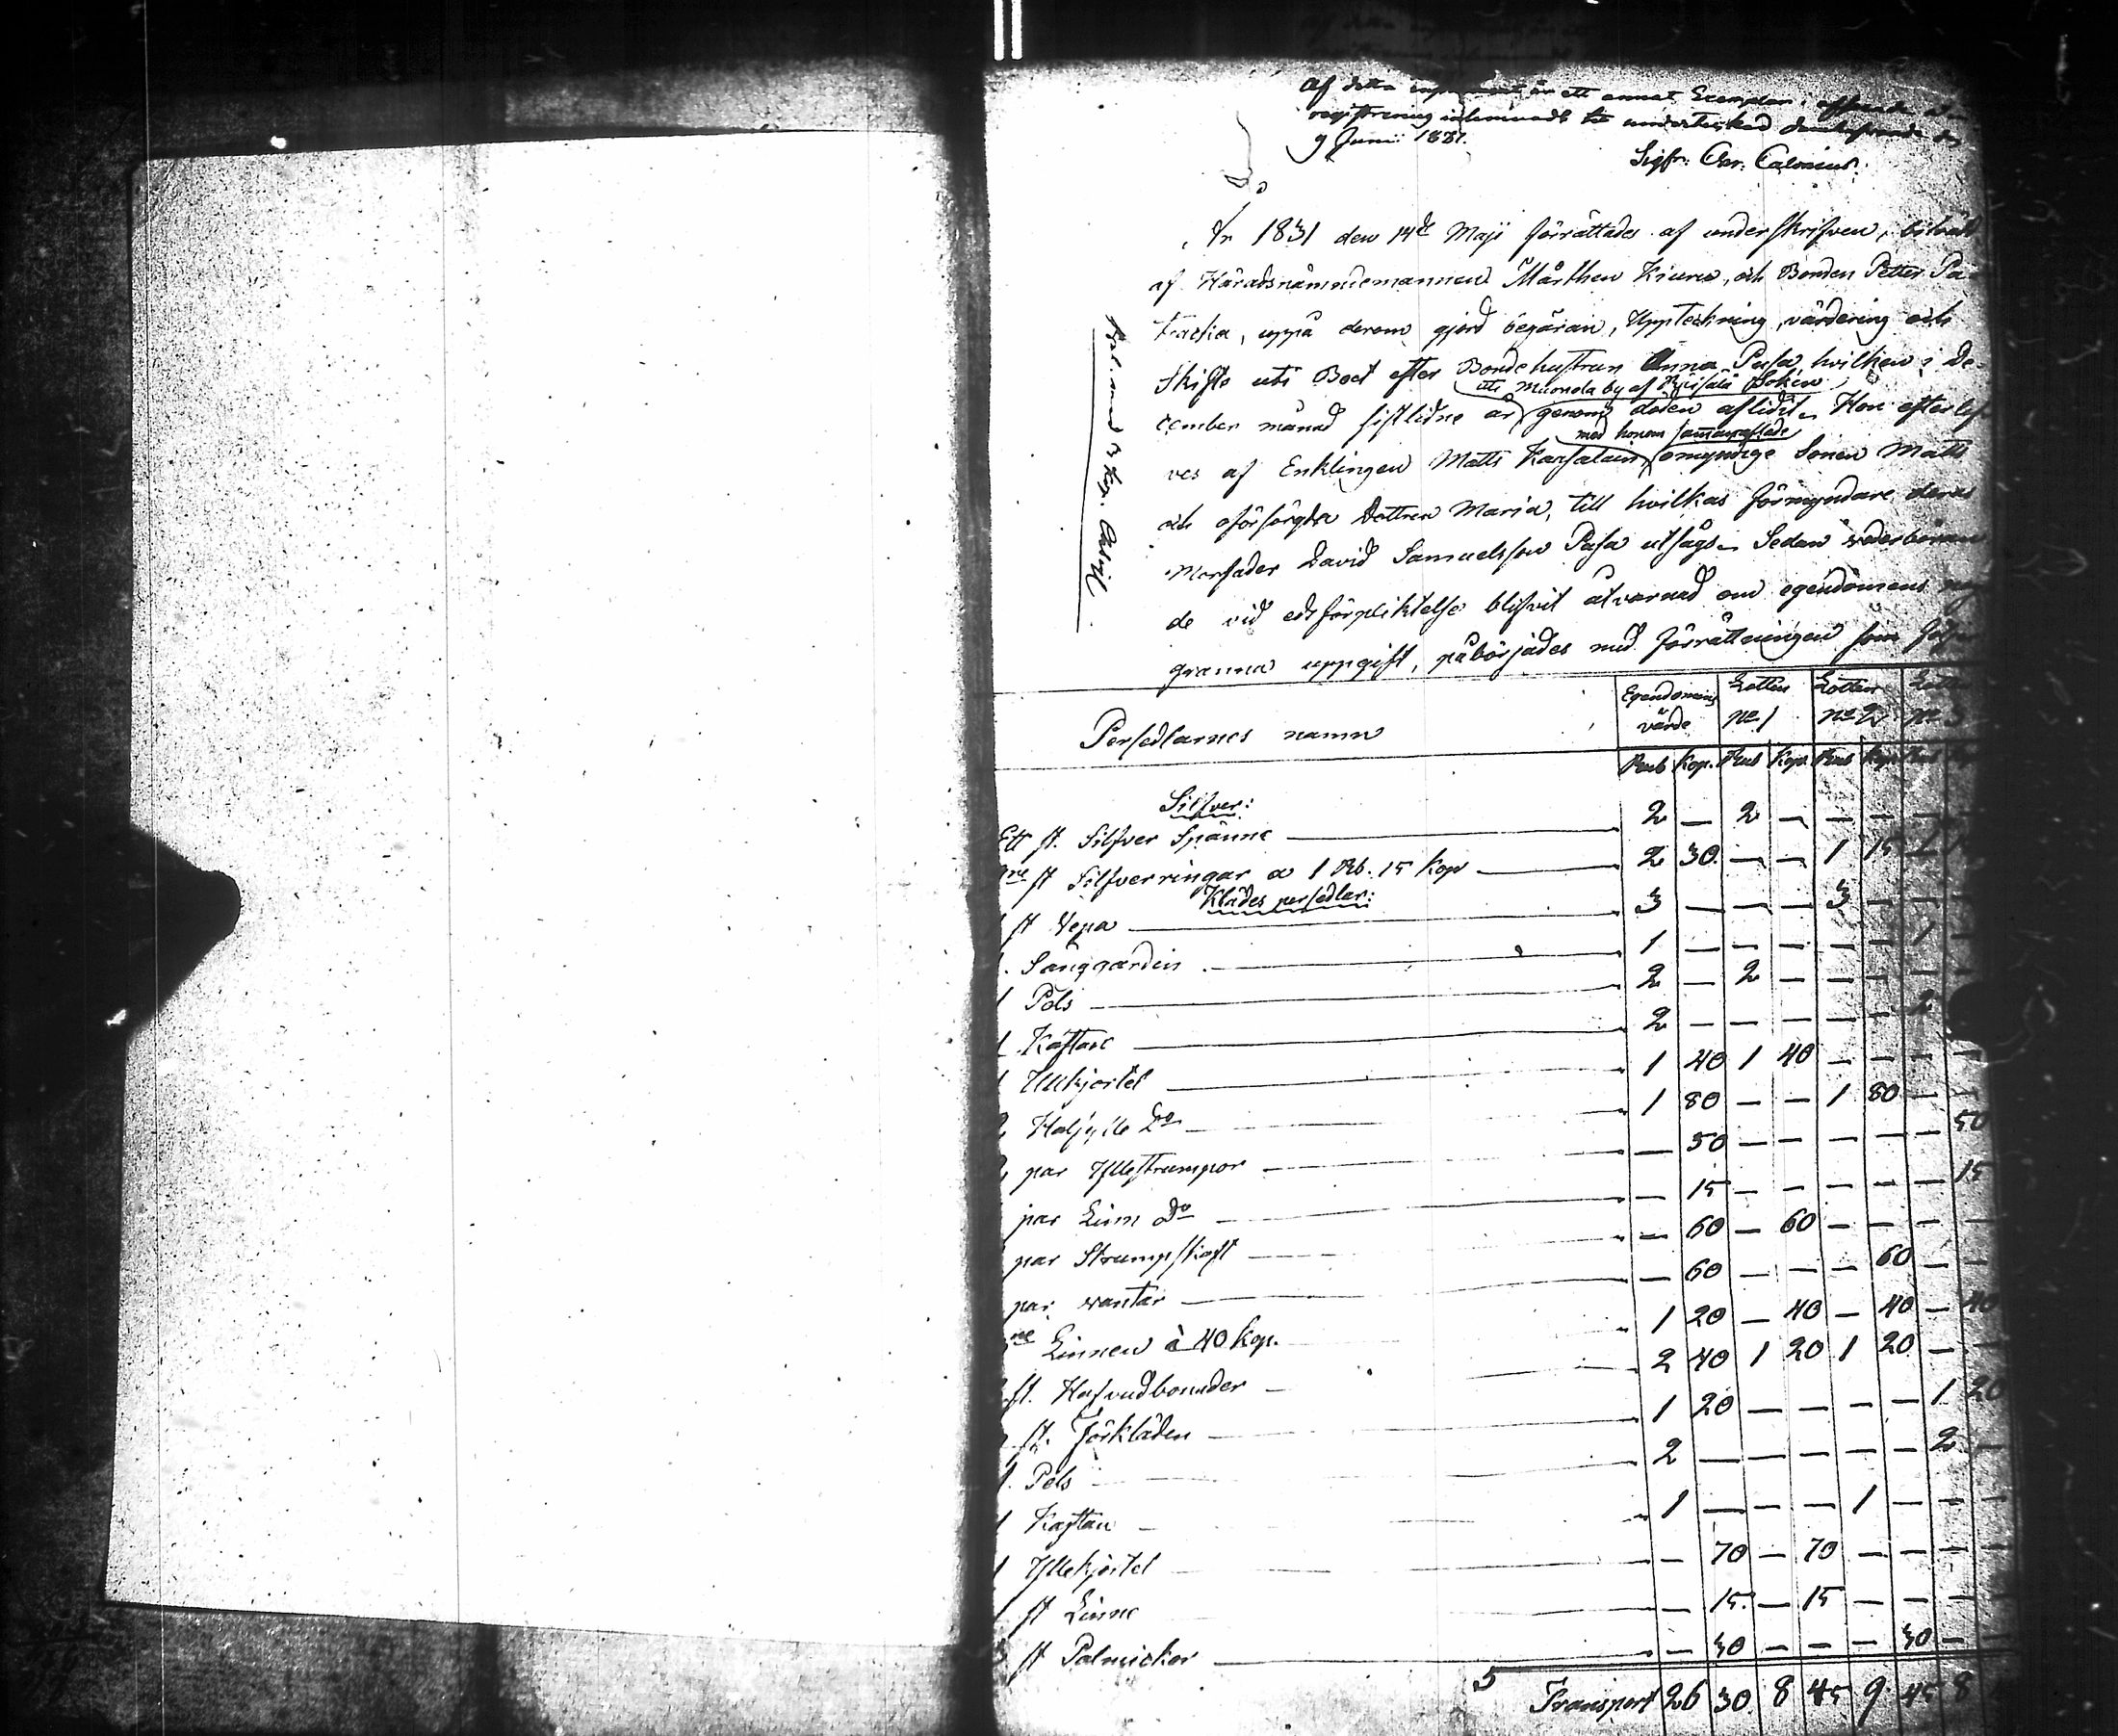 Af detta instrument är ett annat Exemplar
registrering inlemnadt till undertecknad den
9 Junii 1831.
Sigfr: Chr: Calonius.
År 1831 den 14de Maji förrättades af underskrifven, biträdd
af Häradsnämndemannen Mårthen Kiuru, och Bonden Petter Pa-
, uppå derom gjord begäran, Uppteckning, värdering och
Skifte uti Boet efter Bondehustrun Anna Pasa, hvilken i De-
uti Muurola by af Sokn
cember månad sistledne år genom döden aflidit. Hon efterlef-
med honom sammanaflade
ves af Enklingen Matts Karsalain, omyndige Sonen Matts
och oförsörgda Dottren Maria, till hvilkas förmyndare deras
Morfader David Samuelsson Pasa utsågs. Sedan vederböran-
de vid edsförpliktelse blifvit åtvarnad om egendomens
granna uppgift, påbörjades med förrättningen som
Persedlarnes namn
Egendomens värde Lotten No 1 Lotten No 2 No 3
Rub Kop. Rub Kop. Rub Kop. Rub
Silfver:
Ett st. Silfver Spänne — 2 — 2 — — —
st Silfverringar a 1 Rb. 15 Kop — 2 30. — — 1 15
Klädes persedlar:
1 st Vepa — 3 — — — 3 — — —
1. Sänggardin — 1 — — — — — 1 —
1 Pels — 2 — 2 — — — —
1 Kaftan — 2 — — — — — 2
1 Ullkjortel — 1 40 1 40 — — — —
2 Halfylle Do — 1 80 — — 1 80 — —
2 par Yllestrumpor — — 50 — — — — — 50
par Linn do — — 15 — — — — — 15
par Strumpskaft — — 60 — 60 — — — —
par vantar — — 60 — — — 60 — —
ne Linnen à 40 kop. 1 20 — 40 — 40 — 40
st. Hufvudbonader — 2 40 1 20 1 20 — —
st. Förkläden — 1 20 — — — — 1 20
1. Pels — 2 — — — — — 2 —
1 Kaftan — 1 — — — 1 — — —
1 Yllekjortel — — 70 — 70 — — — —
1 st Linne — 15. — 15 — — — —
3 st Palmickor — — 30 — — — 30 — —
5 Transport 26 30. 8 45 9 45 8